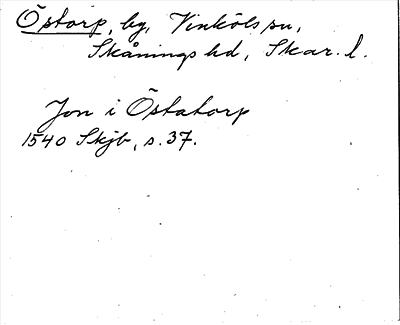 Östorp, by, Vinköls sn,
Skånings hd, Skar. l.
Jon i Östatorp
1540 Skjb, s. 37.